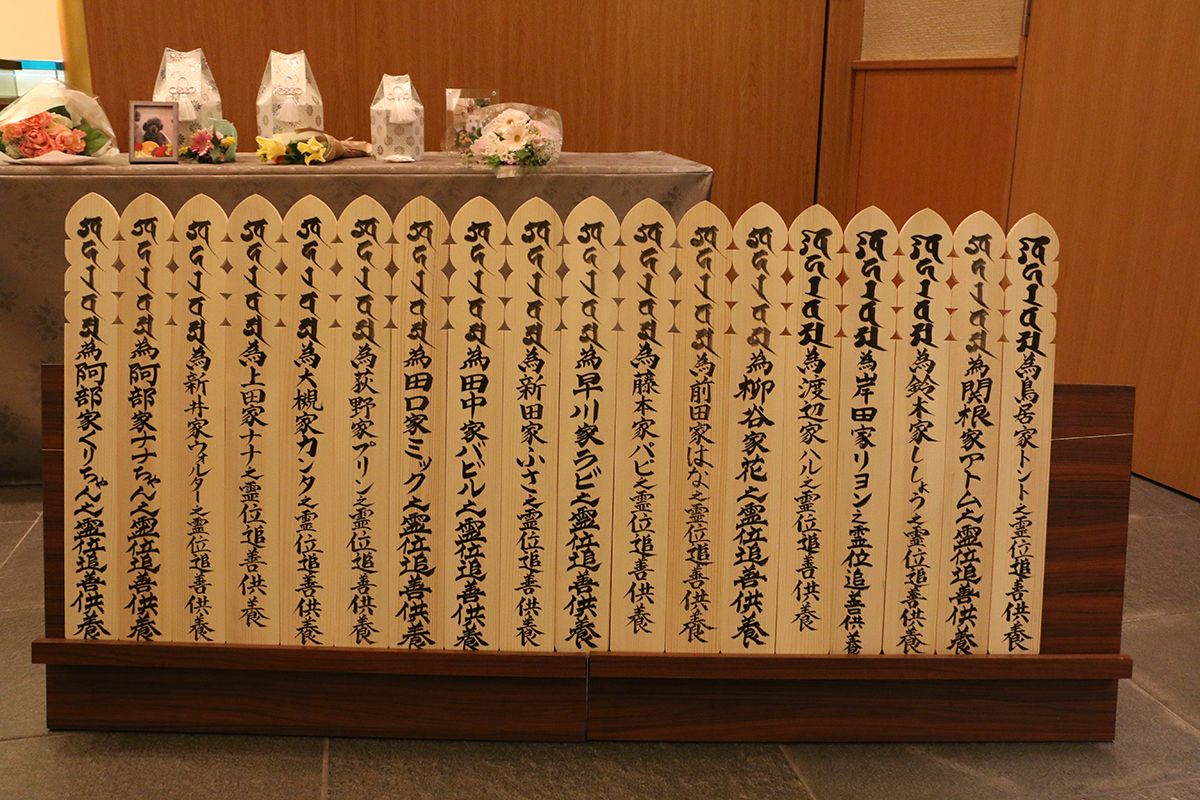 為鳥居家トント之霊位追善供養
為関根家アトム之霊位追善供養
為鈴木家ししょう之霊位追善供養
為岸田家リヨン之霊位追善供養
為渡辺家ハル之霊位追善供養
為柳谷家花之霊位追善供養
為前田家はな之霊位追善供養
為藤本家バビ之霊位追善供養
為早川家ラビ之霊位追善供養
為新田家ふさ之霊位追善供養
為田中家バビル之霊位追善供養
為田口家ミック之霊位追善供養
為荻野家プリン之霊位追善供養
為大槻家カンタ之霊位追善供養
為上田家ナナ之霊位追善供養
為新井家ウォルター之霊位追善供養
為阿部家ナナちゃん之霊位追善供養
為阿部家くりちゃん之霊位追善供養